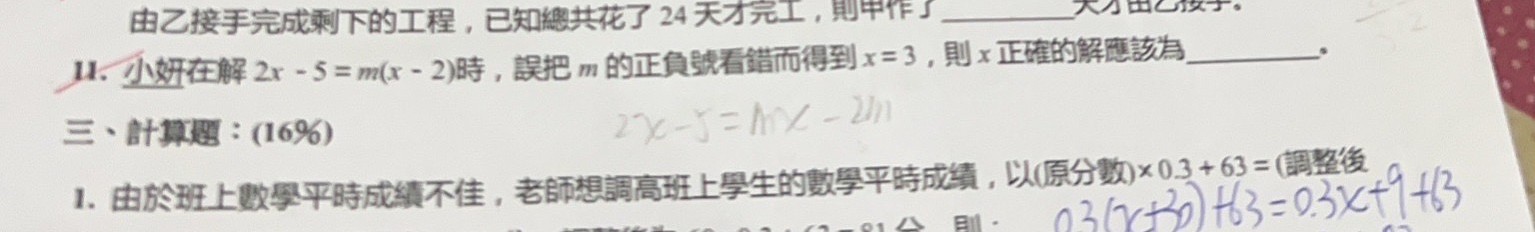 由乙接手完成剩下的工程，已知總共花了 24 天才完工，則甲作了________天才由乙接手。
11. 小妍在解 2x - 5 = m(x - 2)時，誤把 m 的正負號看錯而得到 x = 3，則 x 正確的解應該為________。
2x-5=mx-2m
三、計算題：(16%)
1. 由於班上數學平時成績不佳，老師想調高班上學生的數學平時成績，以(原分數)×0.3 + 63 = (調整後
0.3(x+30)+63=0.3x+9+63